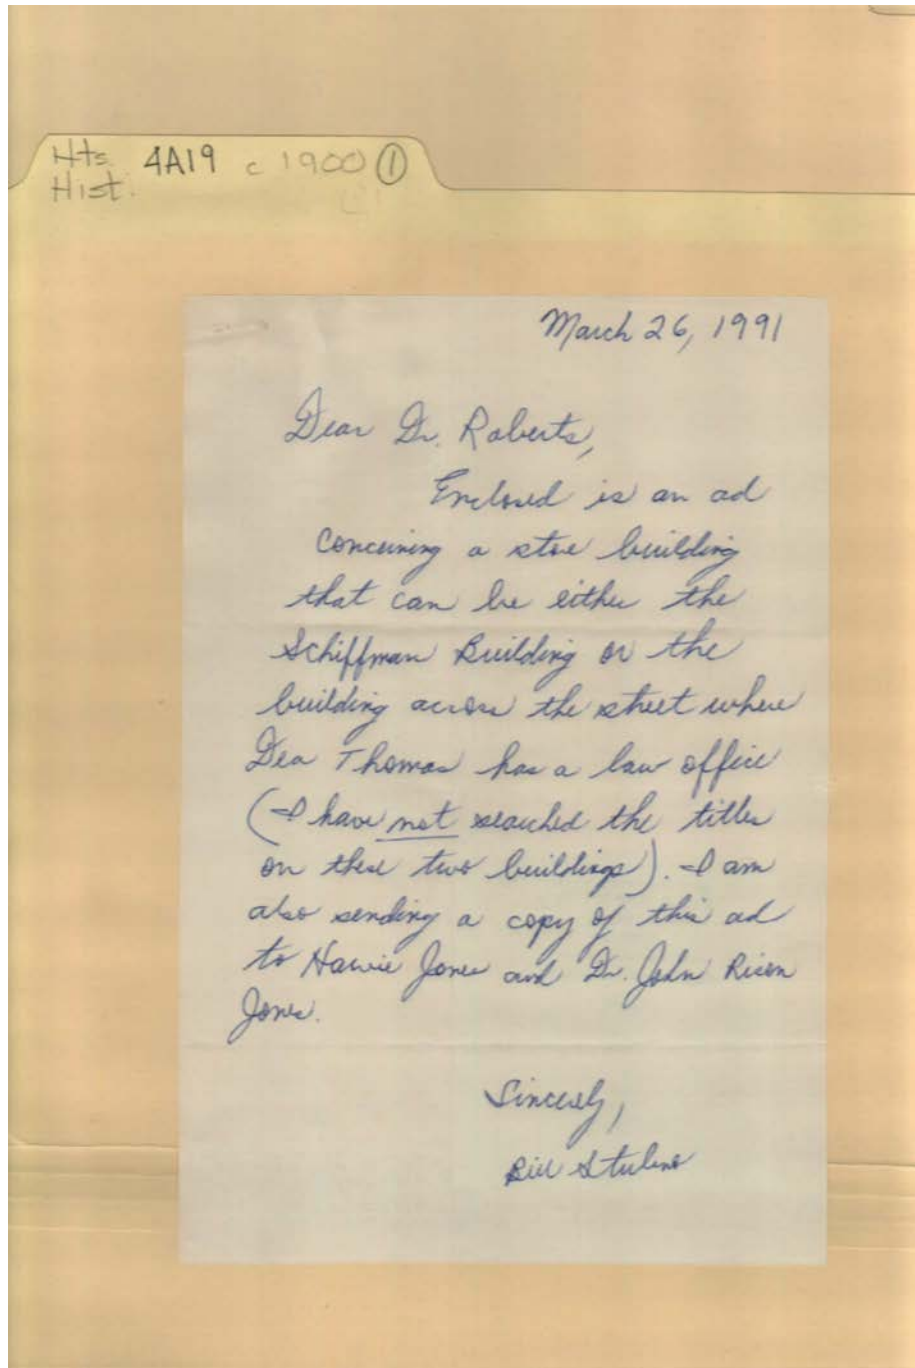 Hts. 4A19 c 1900 ①
Hist.
March 26, 1991
Dear Dr. Roberts,
Enclosed is an ad
concerning a store building
that can be either the
Schiffman Building or the
building across the street where
Dea Thomas has a law office
(I have not searched the titles
on these two buildings). I am
also sending a copy of this ad
to Harvie Jones and Dr. John Rison
Jones.
Sincerely,
Bill Stubno